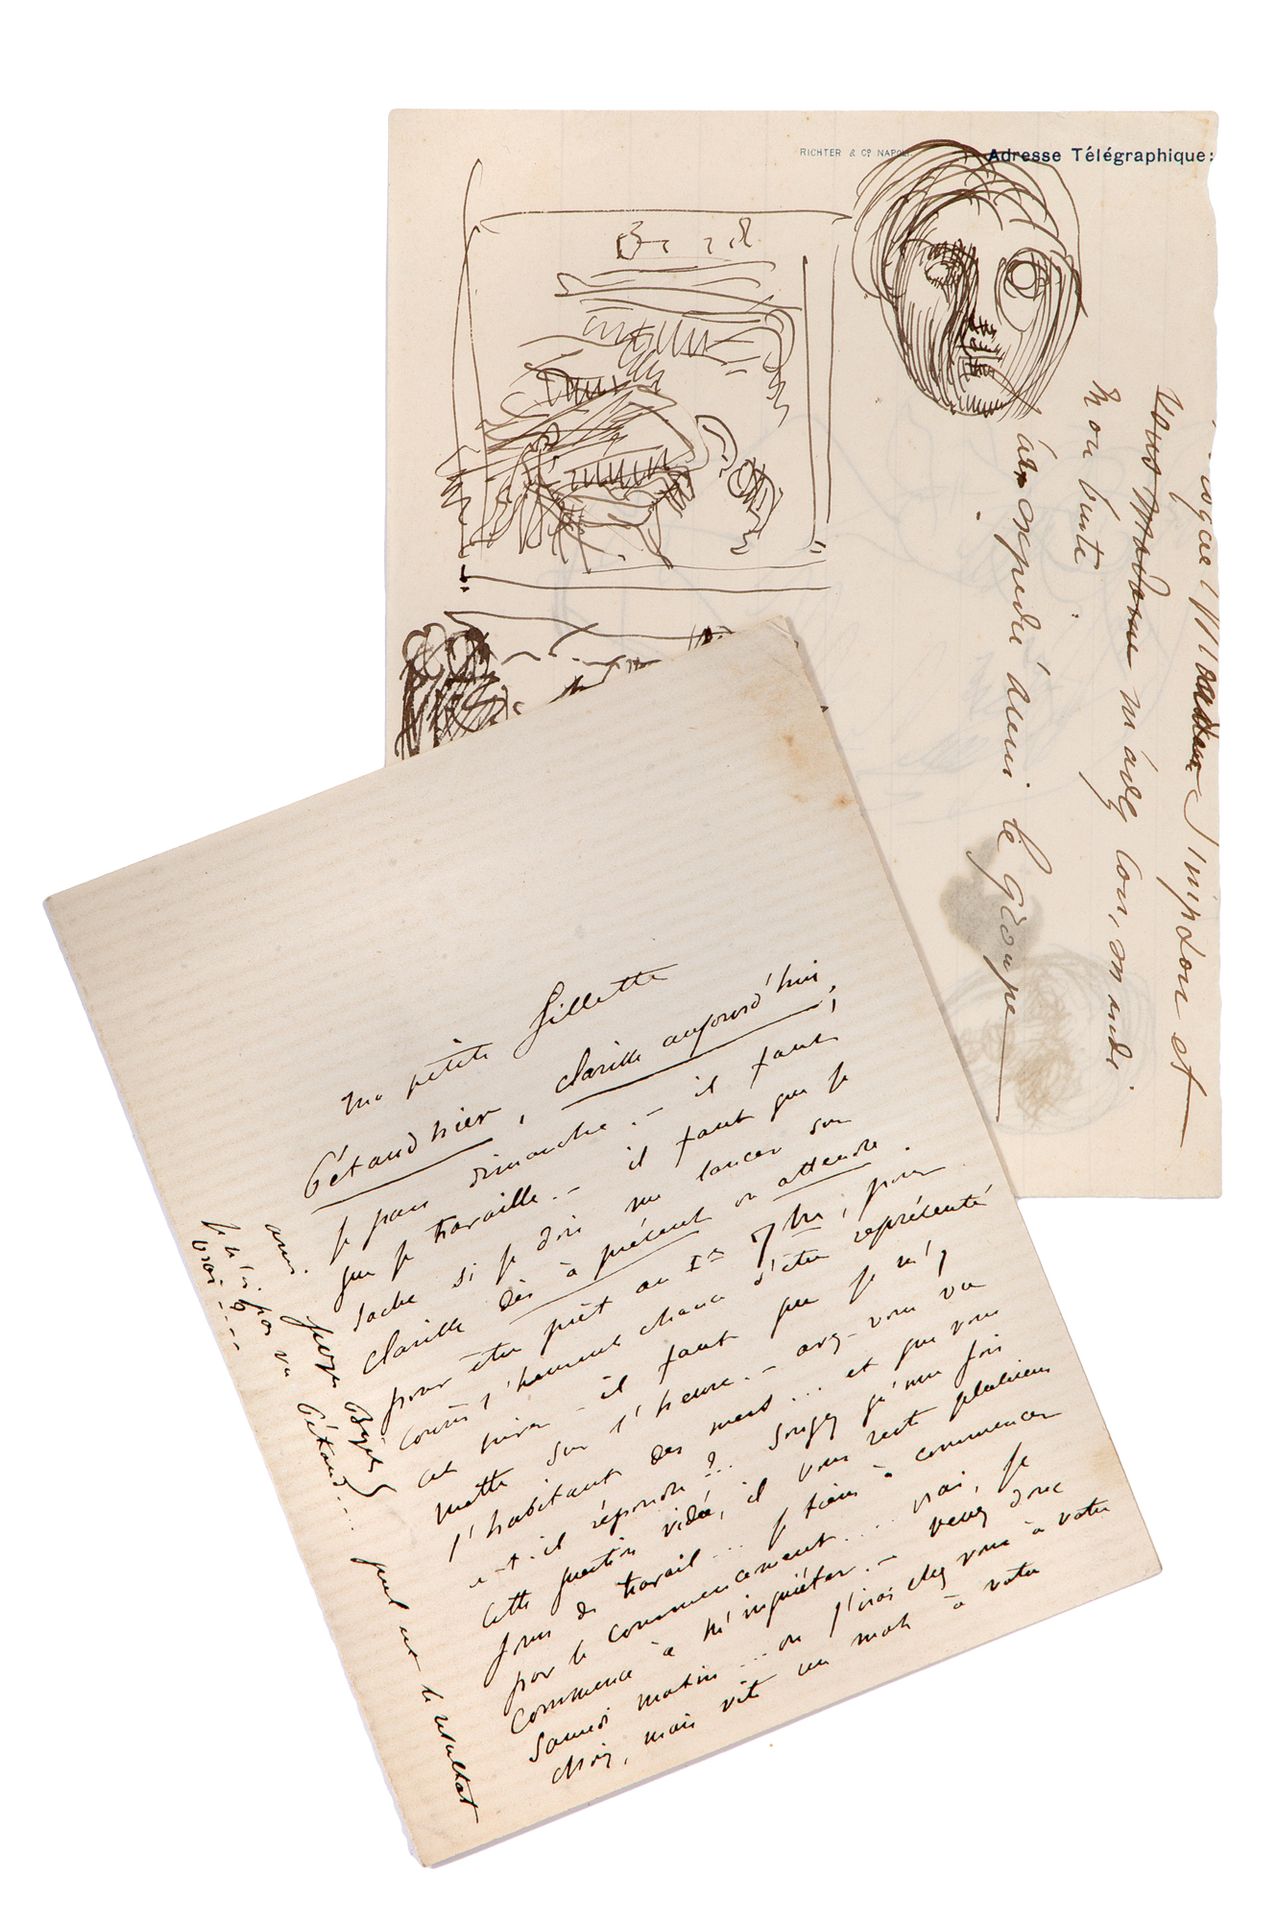 RICHTER & Cº NAPOLI
Adresse Télégraphique:
Simpson et
vous Madame m'avez
mon buste
expédié aussi le Groupe
ma petite fillette
Pétaud hier, Clarille aujourd'hui,
je pars dimanche. – il faut
que je travaille. – il faut que je
sache si je dois me lancer sur
Clarille dès à présent ou attendre
pour être prêt au 1er 7bre, pour
courir l'heureuse chance d'être représenté
cet hiver – il faut que je m'y
mette sur l'heure. – avez-vous vu
l'habitant des mers... et que vous
a-t-il répondu?.. Songez qu'une fois
cette question vidée, il vous reste plusieurs
jours de travail... je tiens à commencer
par le commencement.... vrai, je
commence à m'inquiéter. – venez donc
samedi matin... ou j'irai chez vous à votre
choix, mais vite un mot à votre
ami
je n'ai pas vu Pétaud... quel est le résultat